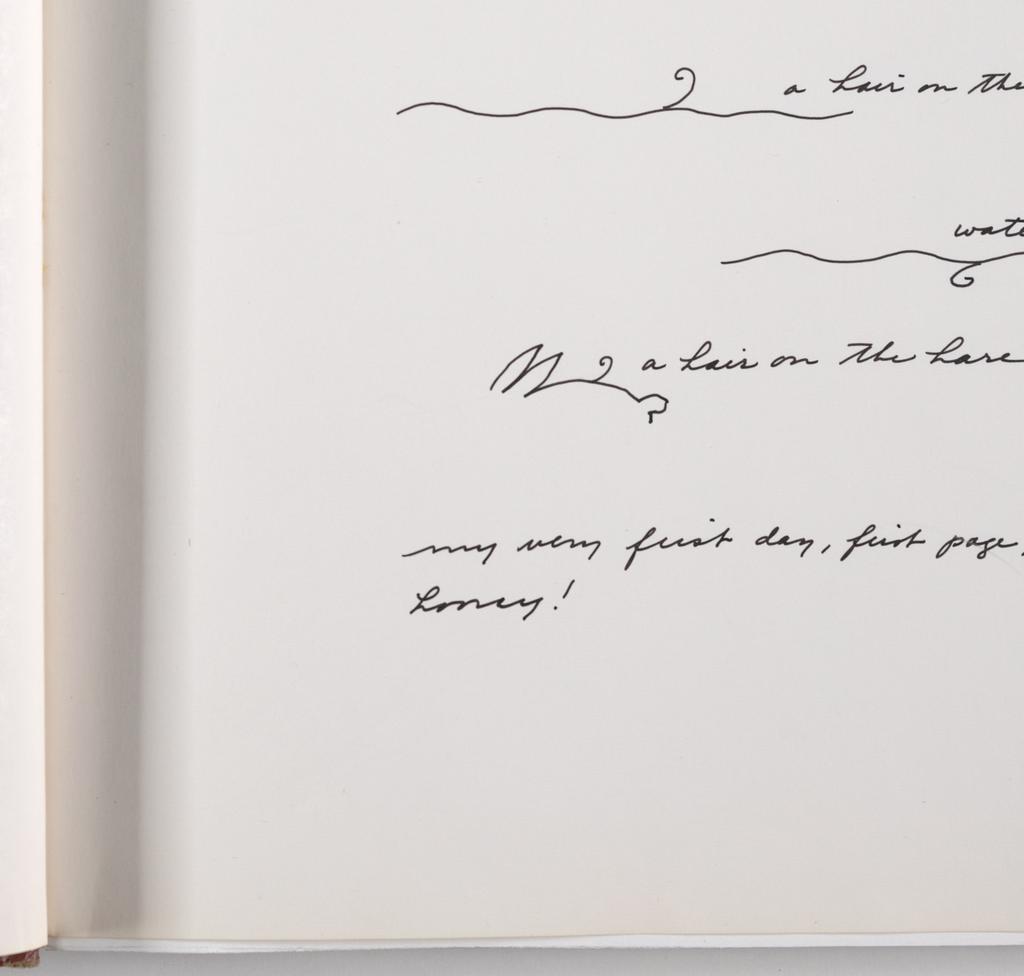 a hair on the
a hair on the hare
my very first day, first page,
honey!